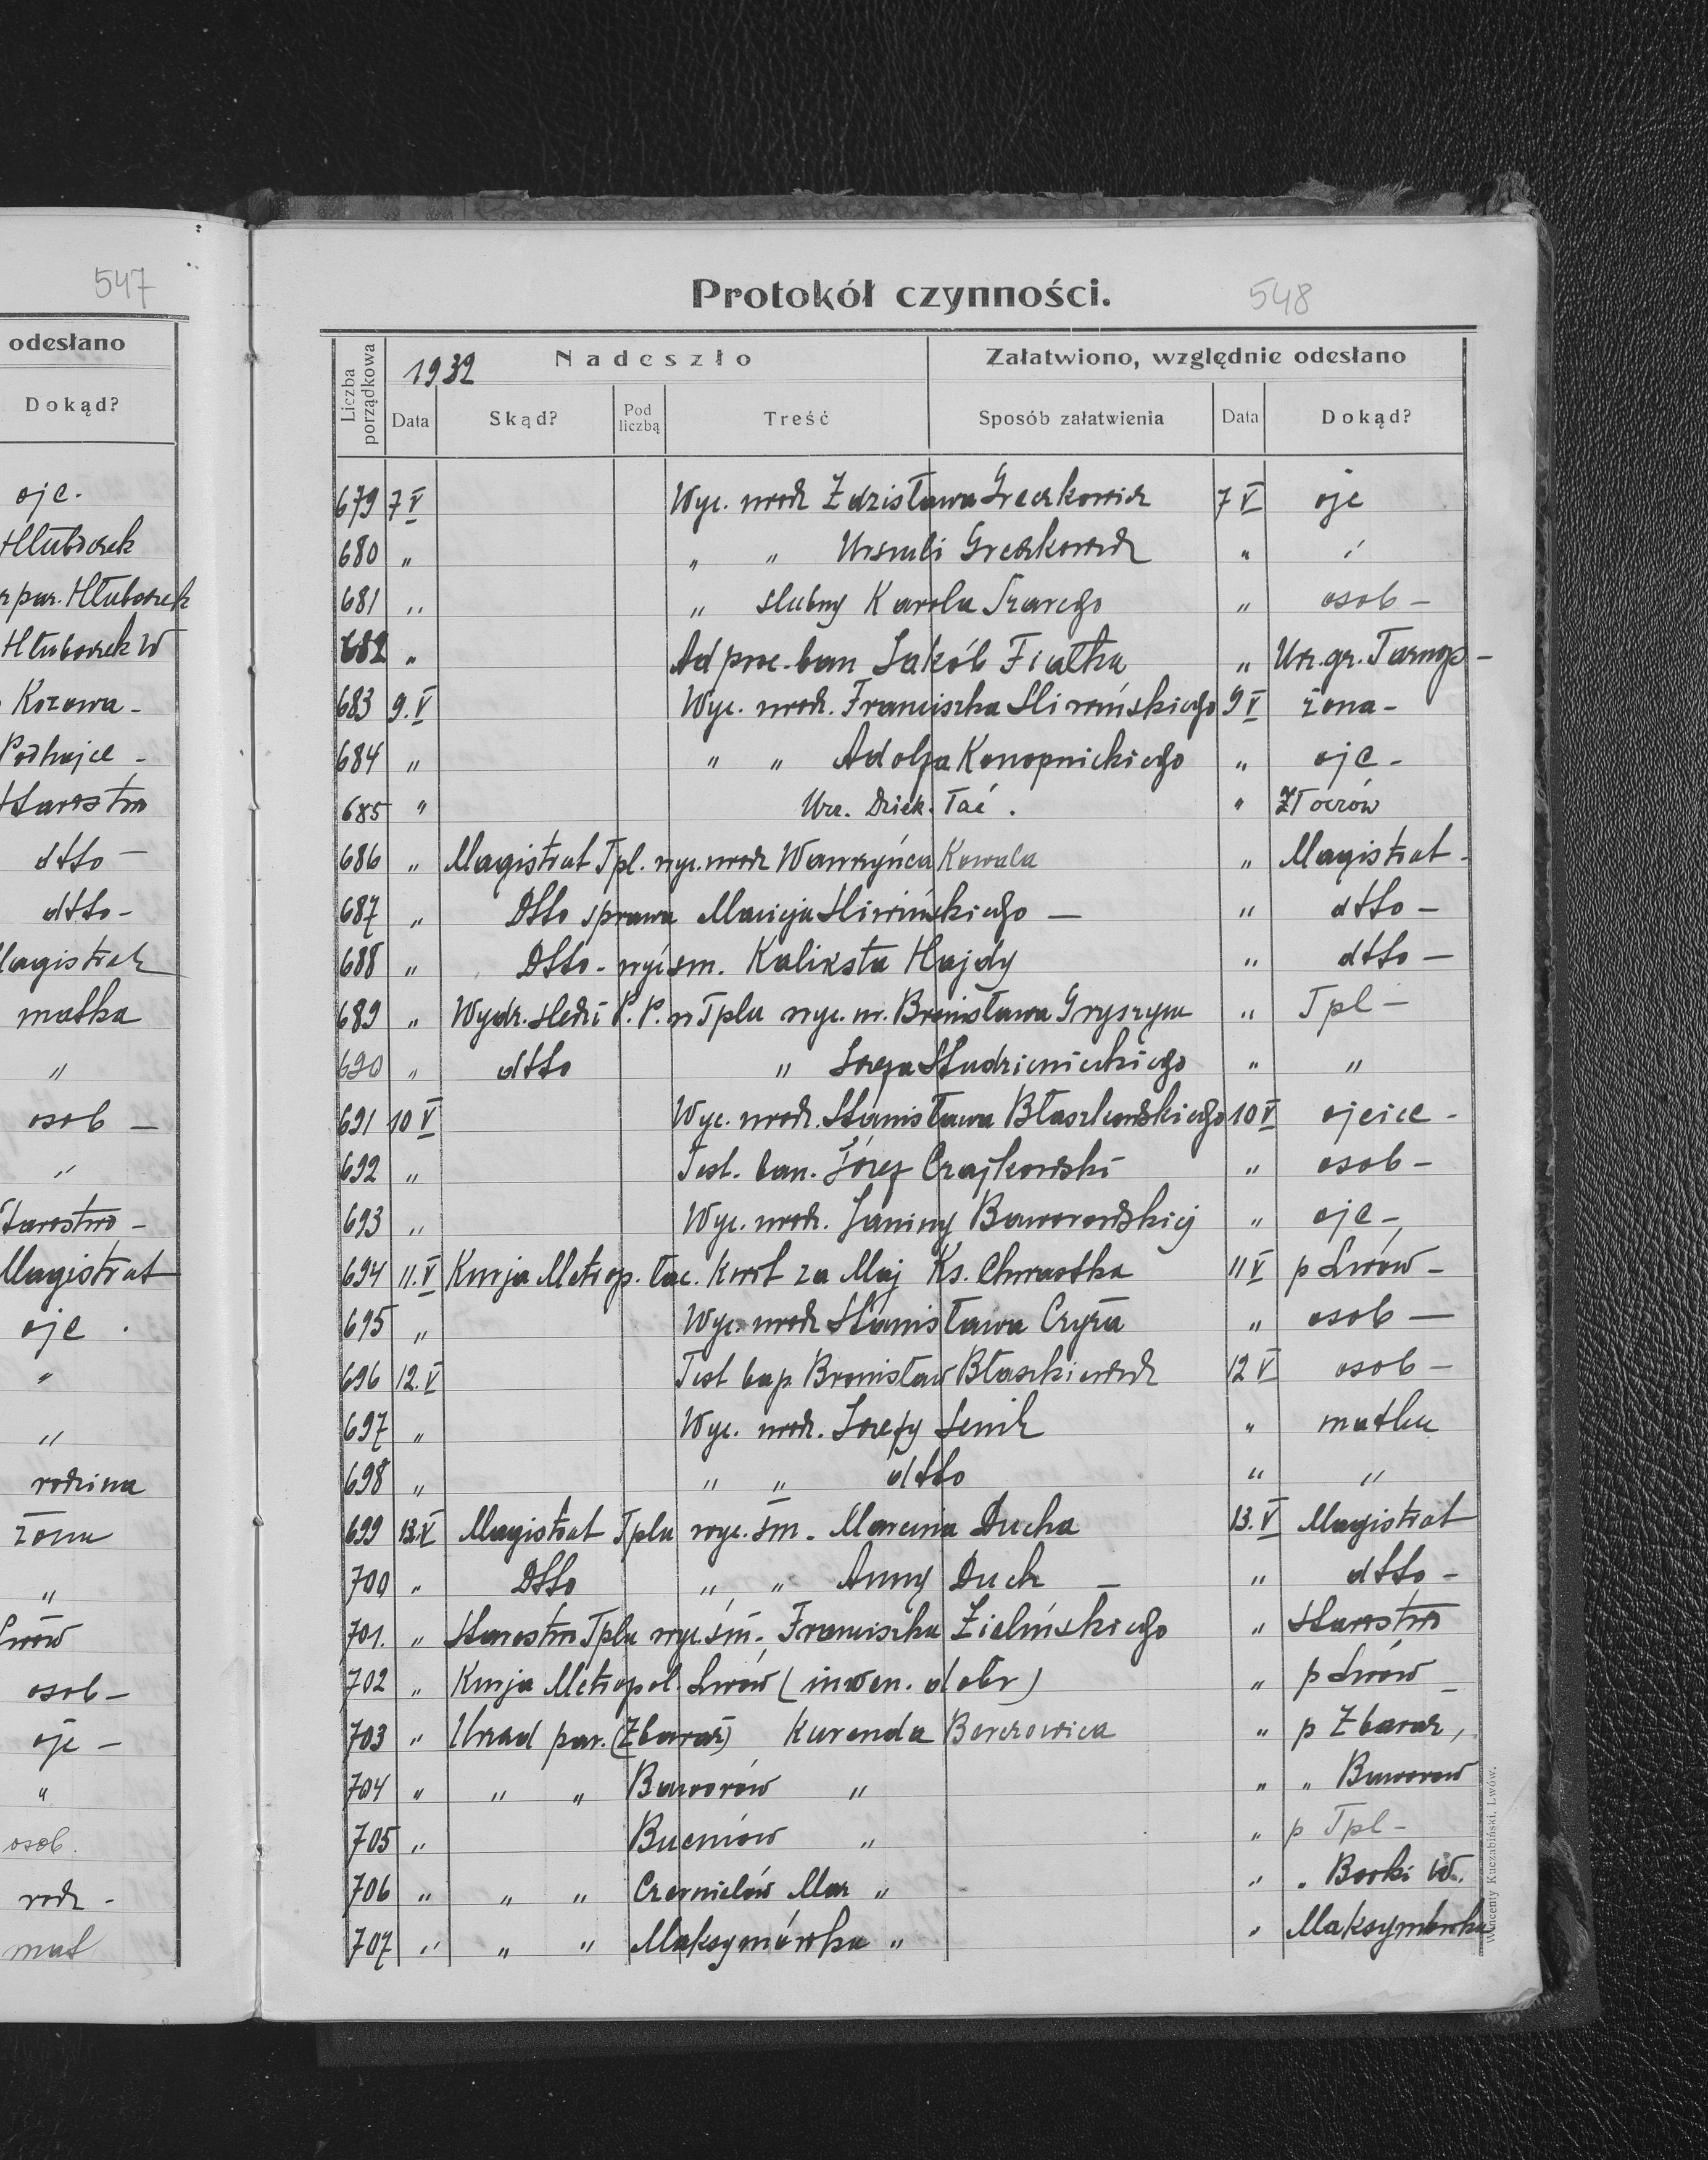 547
odesłano
Dokąd?
ojc.
Hłuboczek
par. Hłuboczek
Hłuboczek W
Kozowa -
Podhajce -
Starostwo
dtto -
dtto -
Magistrat
matka
"
osob -
"
Starostwo -
Magistrat
ojc .
"
"
rodzina
żona
"
Lwów
osob -
ojc -
"
osob.
rodz -
mat
Protokół czynności.
548
Liczba porządkowa
1932
Nadeszło
Załatwiono, względnie odesłano
Data
Skąd?
Pod liczbą
Treść
Sposób załatwienia
Data
Dokąd?
679 7 V Wyc. urodz Zdzisława Greczkowicz 7 V ojc
680 " " " Urszuli Greczkowicz " "
681 " " ślubny Karola Szarego " osob -
682 " Ad proc. ban Jakób Fiałka " Urz. gr. Tarnop -
683 9. V Wyc. urodz. Franciszka Śliwińskiego 9 V żona -
684 " " " Adolfa Konopnickiego " ojc -
685 " Urz. Dziek. łać . " Złoczów
686 " Magistrat Tpl. wyc. urodz Wawrzyńca Kowala " Magistrat -
687 " Dtto sprawa Macieja Śliwińskiego — " dtto -
688 " Dtto - wyc śm. Kaliksta Hajdy " dtto -
689 " Wydz. śledzi P. P. w Tplu wyc. ur. Bronisława Gryszyna " Tpl -
690 " dtto " Józefa Studzienickiego " "
691 10 V Wyc. urodz. Stanisława Błaszkowskiego 10 V ojciec -
692 " Test. ban. Józef Czajkowski " osob -
693 " Wyc. urodz. Janiny Baworowskiej " ojc -
694 11. V Kurja Metrop. łac. kwit za Maj Ks. Chwastka 11 V p Lwów -
695 " Wyc. urodz Stanisława Czyża " osob —
696 12. V Test bap. Bronisław Błaszkiewicz 12 V osob -
697 " Wyc. urodz. Józefy Senik " matka
698 " " " dtto " "
699 13. V Magistrat Tplu wyc. śm. Marcina Ducha 13. V Magistrat
700 " Dtto " " Anny Duch — " dtto -
701. " Starostwo Tplu wyc śm. Franciszka Zielińskiego " Starostwo
702 " Kurja Metropol. Lwów (inwen. dóbr) " p Lwów -
703 " Urzad par. (Zbaraż) Kurenda Borczowica " p Zbaraz,
704 " " " Baworów " " " Baworow
705 " Bucniów " " p Tpl -
706 " " " Czernielów Maz " " " Borki W.
707 " " " Maksymówka " " Maksymówka
Wincenty Kuczabiński, Lwów.